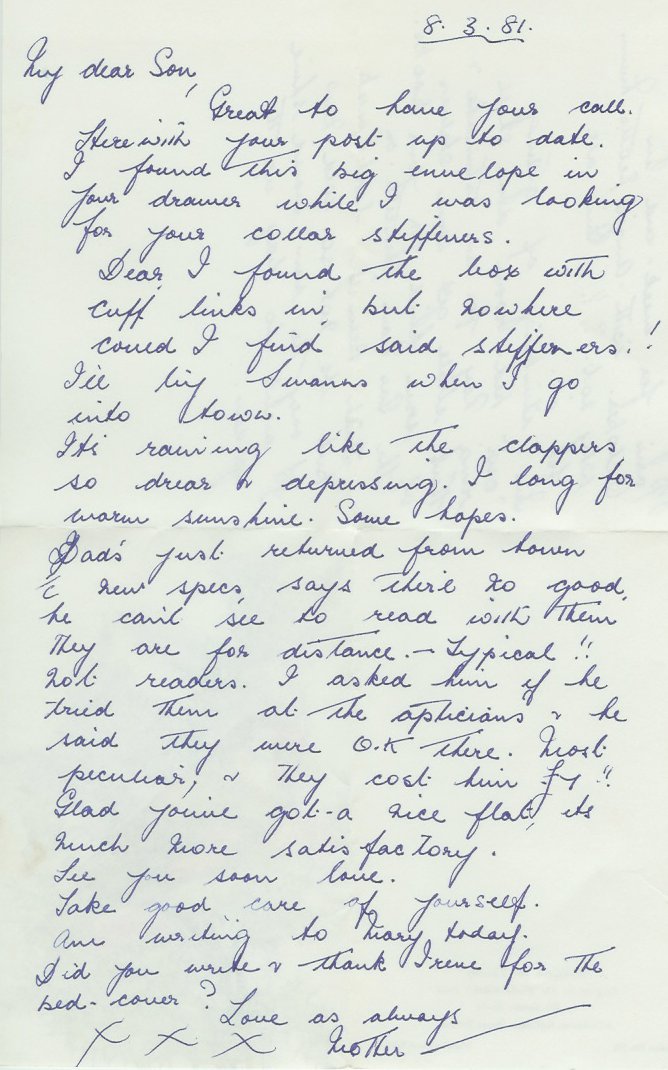 8.3.81.
My dear Son,
Great to have your call.
Herewith your post up to date.
I found this big envelope in
your drawer while I was looking
for your collar stiffeners.
Dear, I found the box with
cuff links in, but nowhere
could I find said stiffeners.!
I'll try Swanns when I go
into town.
Its raining like the clappers
so drear & depressing. I long for
warm sunshine. Some hopes.
Dad's just returned from town
c̄ new specs, says there no good,
he can't see to read with them
They are for distance. – Typical !!
not readers. I asked him if he
tried them at the opticians & he
said they were O.K there. Most
peculiar, & they cost him !!
Glad you've got a nice flat, its
much more satisfactory.
See you soon love.
Take good care of yourself.
Am writing to Mary today.
Did you write & thank Irene for the
bed-cover?
Love as always
X X X Mother